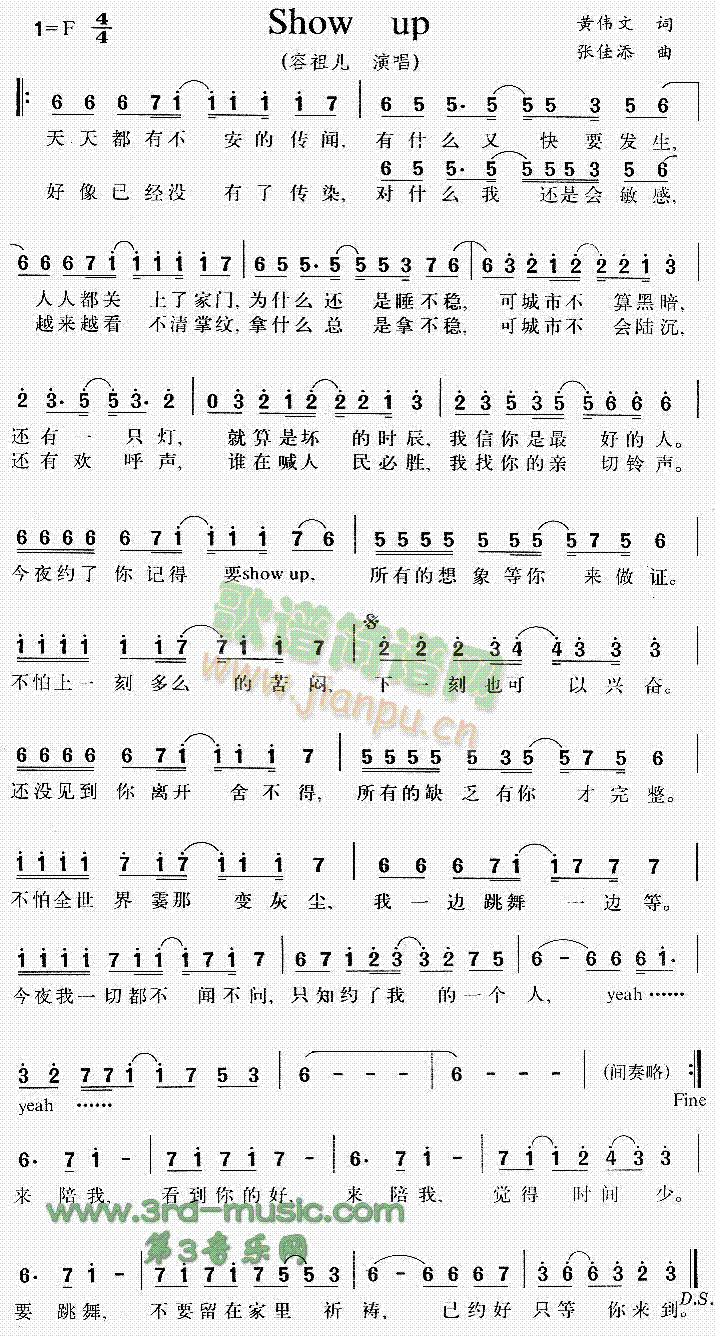 1=F 4/4
Show up
黄伟文 词
(容祖儿 演唱)
张佳添 曲
6 6 6 7 1 1 1 1 1 7 6 5 5· 5 5 5 3 5 6
天天都有不 安的传闻, 有什么又 快要发生,
6 5 5· 5 5 5 5 3 5 6
好像已经没 有了传染, 对什么我 还是会敏感,
6 6 6 7 1 1 1 1 1 7 6 5 5· 5 5 5 3 7 6 6 3 2 1 2 2 2 1 3
人人都关 上了家门, 为什么还 是睡不稳, 可城市不 算黑暗,
越来越看 不清掌纹, 拿什么总 是拿不稳, 可城市不 会陆沉,
2 3· 5 5 3· 2 0 3 2 1 2 2 2 1 3 2 3 5 3 5 5 6 6 6
还有一 只灯, 就算是坏 的时辰, 我信你是最 好的人。
还有欢 呼声, 谁在喊人 民必胜, 我找你的亲 切铃声。
6 6 6 6 6 7 1 1 1 1 7 6 5 5 5 5 5 5 5 5 7 5 6
今夜约了你记得 要show up, 所有的想象等你 来做证。
1 1 1 1 1 1 7 7 1 1 7 2 2 2 3 4 4 3 3 3
不怕上一刻多么 的苦闷, 下一刻也可 以兴奋。
歌谱简谱网
www.jianpu.cn
6 6 6 6 6 7 1 1 1 1 7 5 5 5 5 5 3 5 5 7 5 6
还没见到你离开 舍不得, 所有的缺乏有你 才完整。
1 1 1 1 7 1 7 1 1 1 7 6 6 6 7 1 1 7 7 7
不怕全世界霎那 变灰尘, 我一边跳舞 一边等。
1 1 1 1 7 1 1 1 7 1 7 6 7 1 2 3 3 2 7 5 6 - 6 6 6 1·
今夜我一切都不 闻不问, 只知约了我 的一个人, yeah……
3 2 7 7 1 1 7 5 3 6 - - - 6 - - - (间奏略)
yeah …… Fine
6· 7 1 - 7 1 7 1 7 7 - 6· 7 1 - 7 1 1 2 4 3 3
来 陪我, 看到你的好, 来 陪我, 觉得时间 少。
www.3rd-music.com
第3音乐网
6· 7 1 - 7 1 7 1 7 5 5 3 6 - 6 6 6 7 3 6 6 3 2 3
要 跳舞, 不要留在家里 祈祷, 已约好只等 你来到。 D.S.